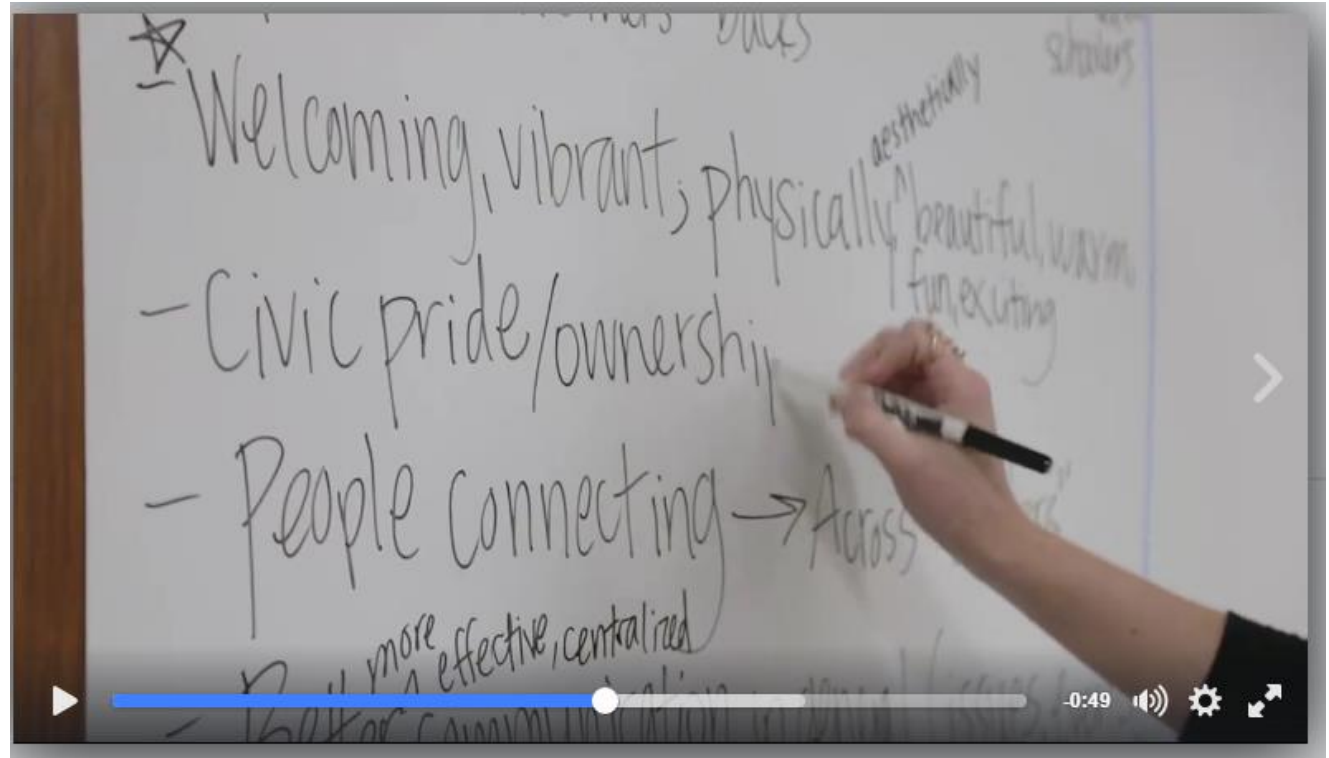 backs
scholars
aesthetically
- Welcoming, vibrant; physically ^ beautiful, warm,
fun, exciting
- Civic pride/ownership
- People connecting → Across
more effective, centralized
- Better communication
-0:49